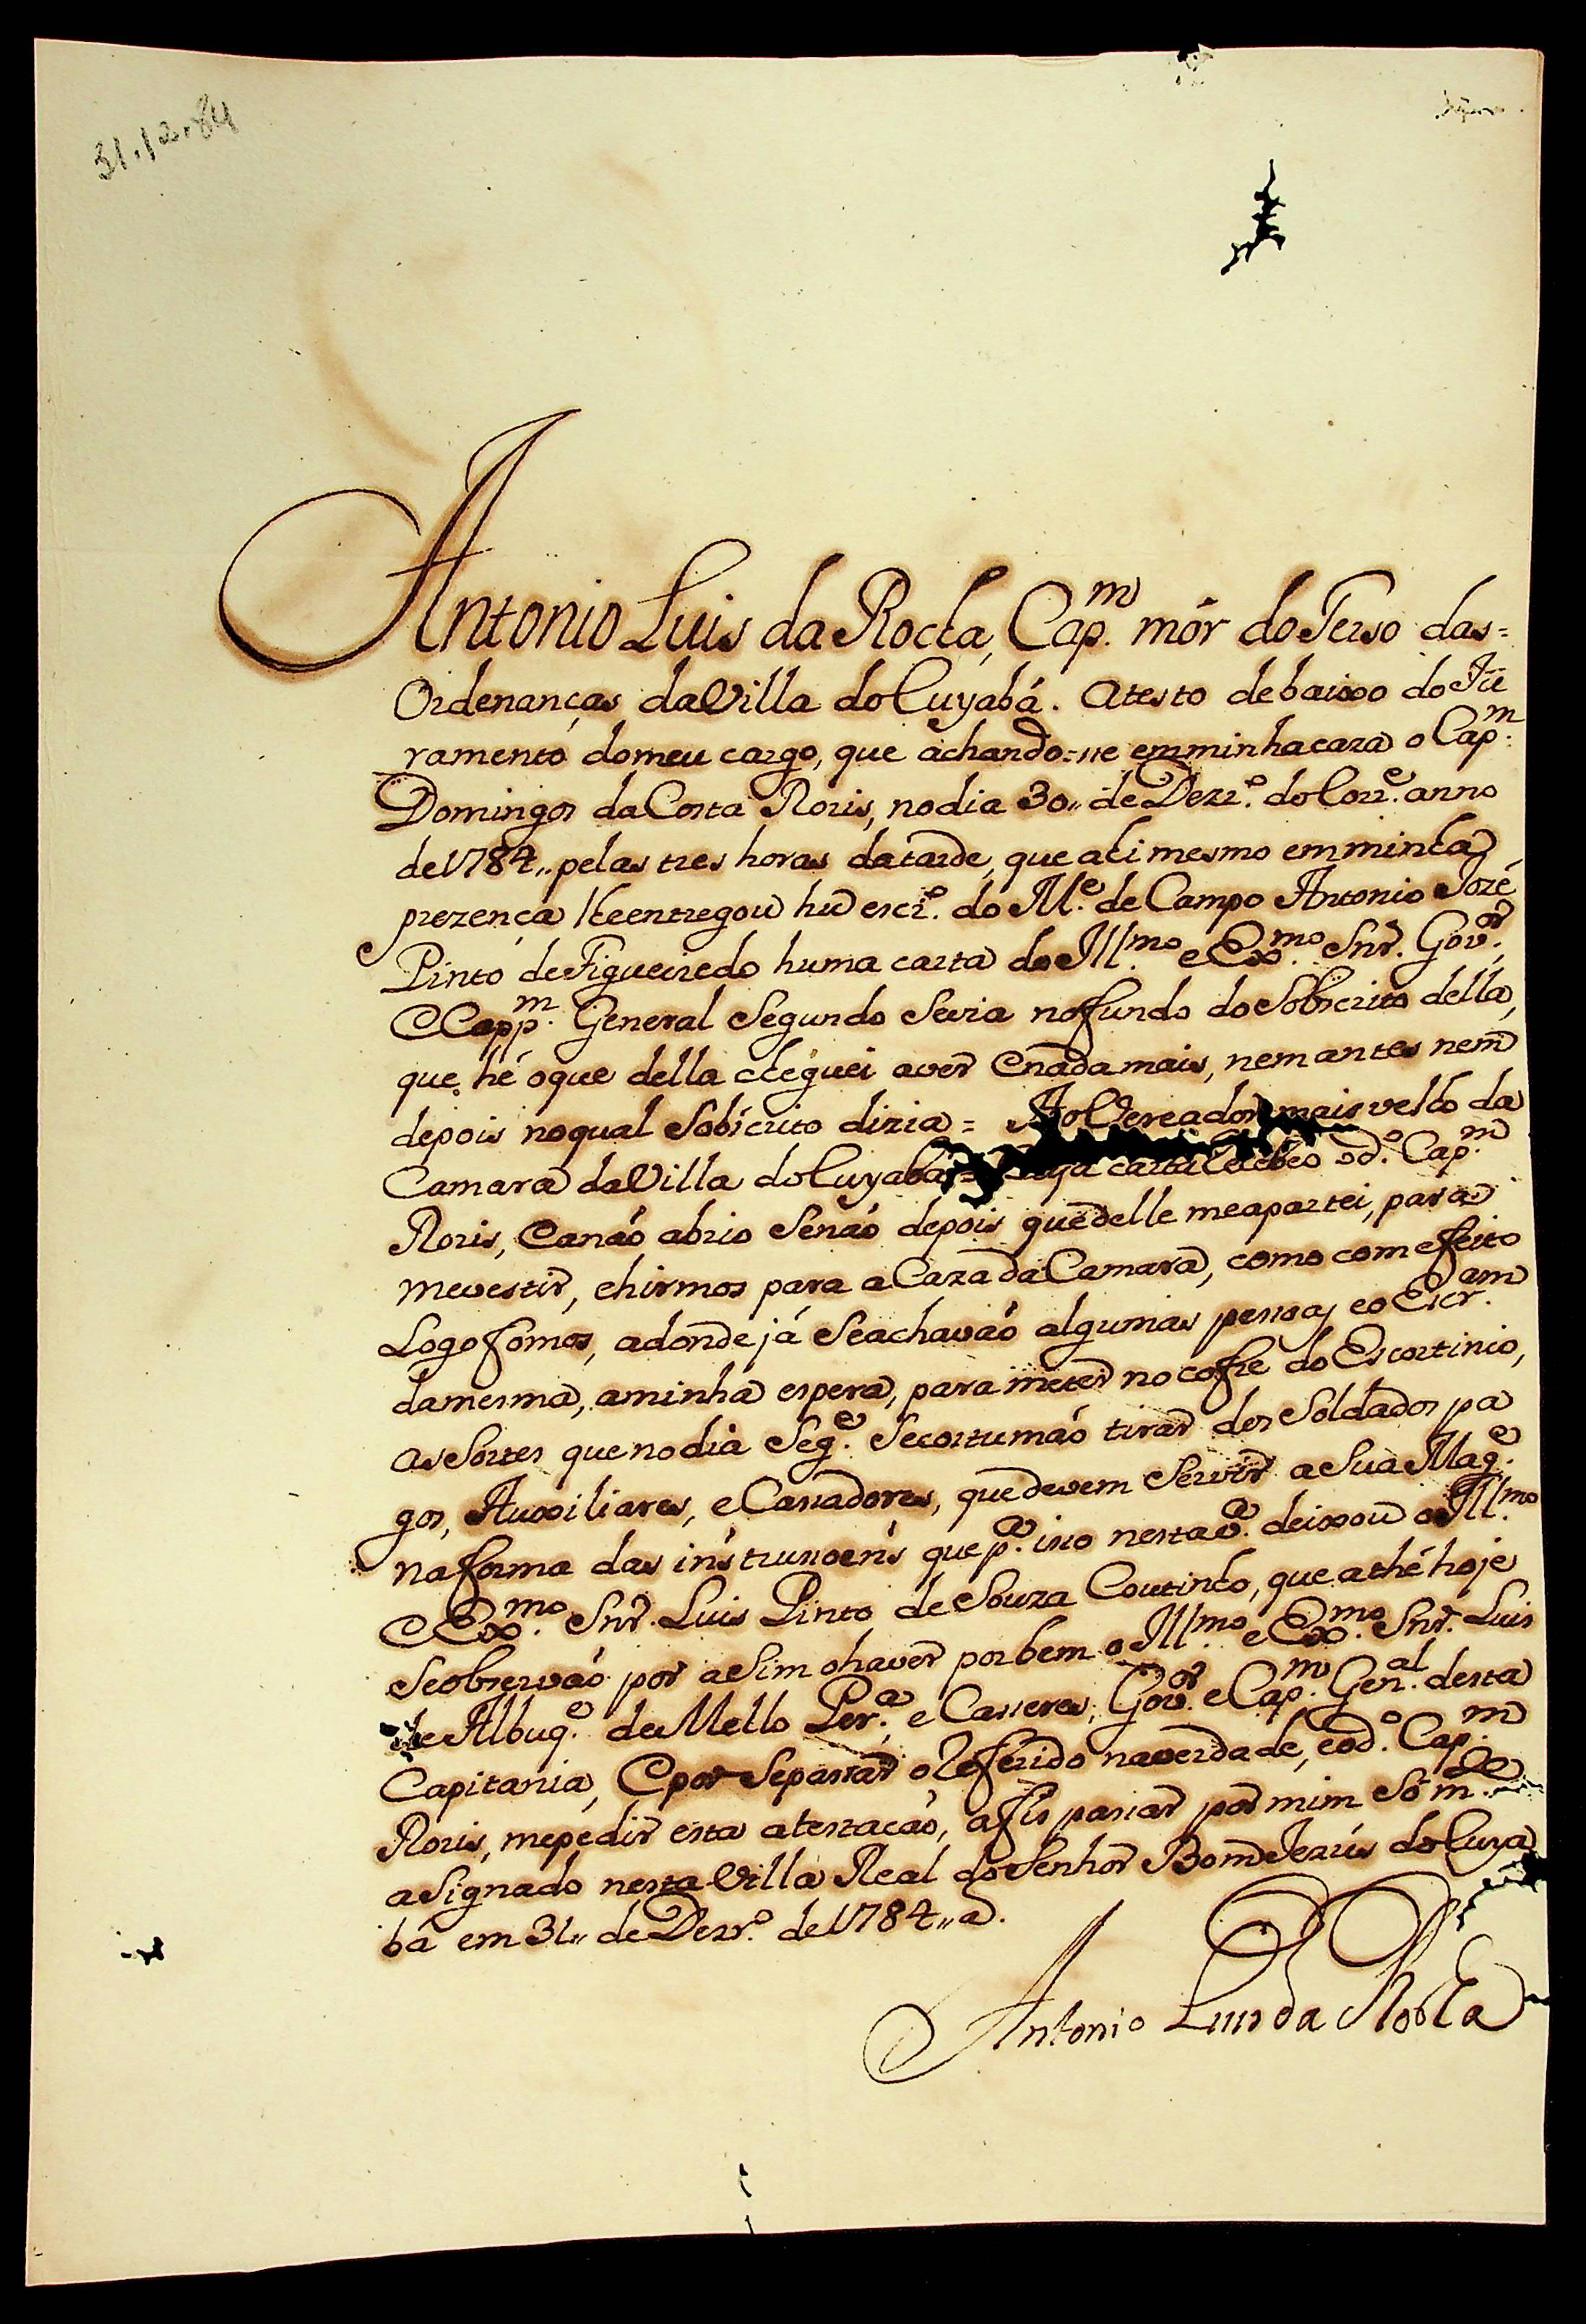 31.12.84
Antonio Luis da Rocha, Cap.m mór do Terso das=
Ordenanças da Villa do Cuyabá. Atesto debaixo do Ju
ramento do meu cargo, que achando=se em minha caza o Cap.m
Domingos da Costa Roris, no dia 30,, de Dezr.o do Corr.e anno
de 1784,, pelas tres horas da tarde, que ali mesmo em minha
prezença lhe entregou hũ escr.o do M.e de Campo Antonio Jozé
Pinto de Figueiredo huma carta do Ill.mo e Ex.mo Snr. Gov.or,
e Capp.m General Segundo Se via no fundo do Sobscrito della,
que hé o que della cheguei a ver e nada mais, nem antes nem
depois no qual Sobscrito dizia = Ao Vereador mais velho da
Camara da Villa do Cuyabá = carta recebeo o d.o Cap.m
Roris, e a não abrio Senão depois que delle me apartei, para
me vestir, e hirmos para a Caza da Camara, como com efeito
Logo fomos, adonde já Se achavão algumas pessoas e o Escr.am
da mesma, a minha espera, para meter no cofre do Escortinio,
as Sortes que no dia Seg.e Se costumão tirar dos Soldados pa
gos, Auxiliares, e Cassadores, que devem Servir a Sua Mag.e
na forma das instrusoens que p.a isso nesta v.a deixou o Ill.mo
e Ex.mo Snr. Luis Pinto de Souza Coutinho, que athé hoje
Se observão por aSim o haver por bem o Ill.mo e Ex.mo Snr. Luis
de Albuq.e de Mello Per.a, e Casseres, Gov.or e Cap.m Gen.al desta
Capitania, e por Se passar o referido na verdade, e o d.o Cap.m
Roris, me pedir esta atestacão, a fis passar por mim Só m.te
aSignado nesta Villa Real do Senhor Bom Jezús do Cuya
bá em 31,, de Dezr.o de 1784,, a.
Antonio Luis da Rocha